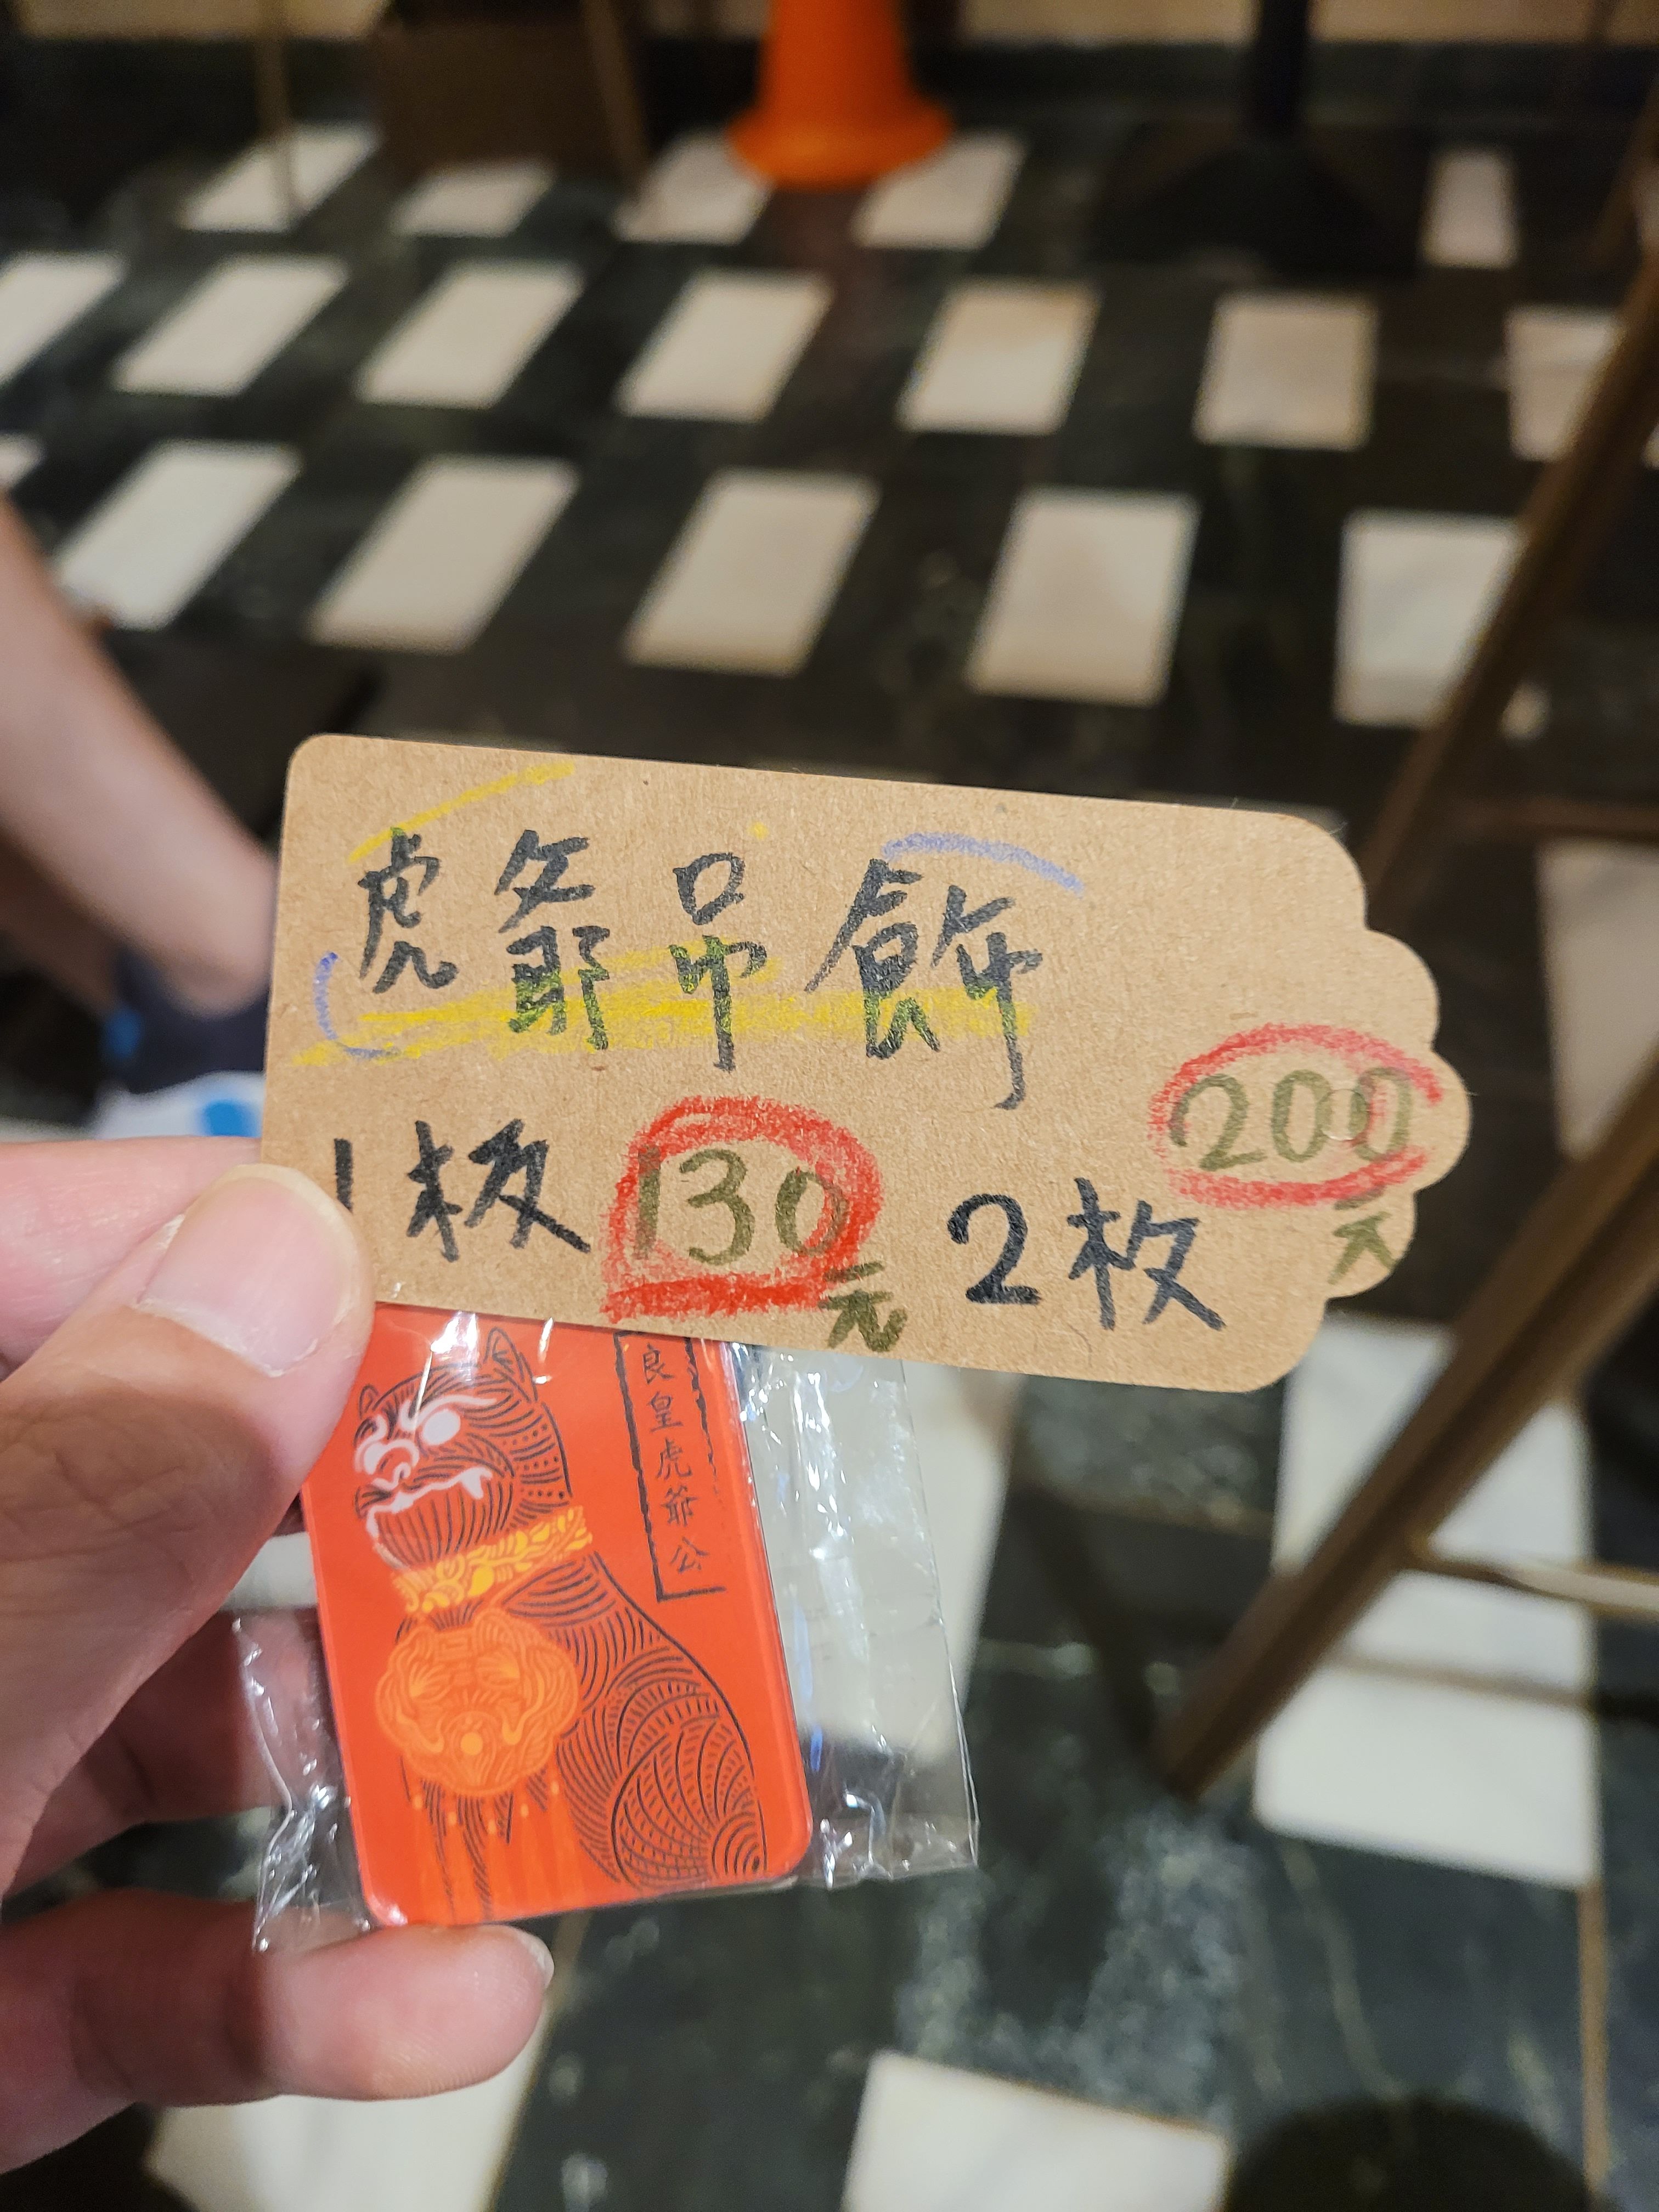 虎爺吊飾
1枚 130元 2枚 200元
良皇虎爺公